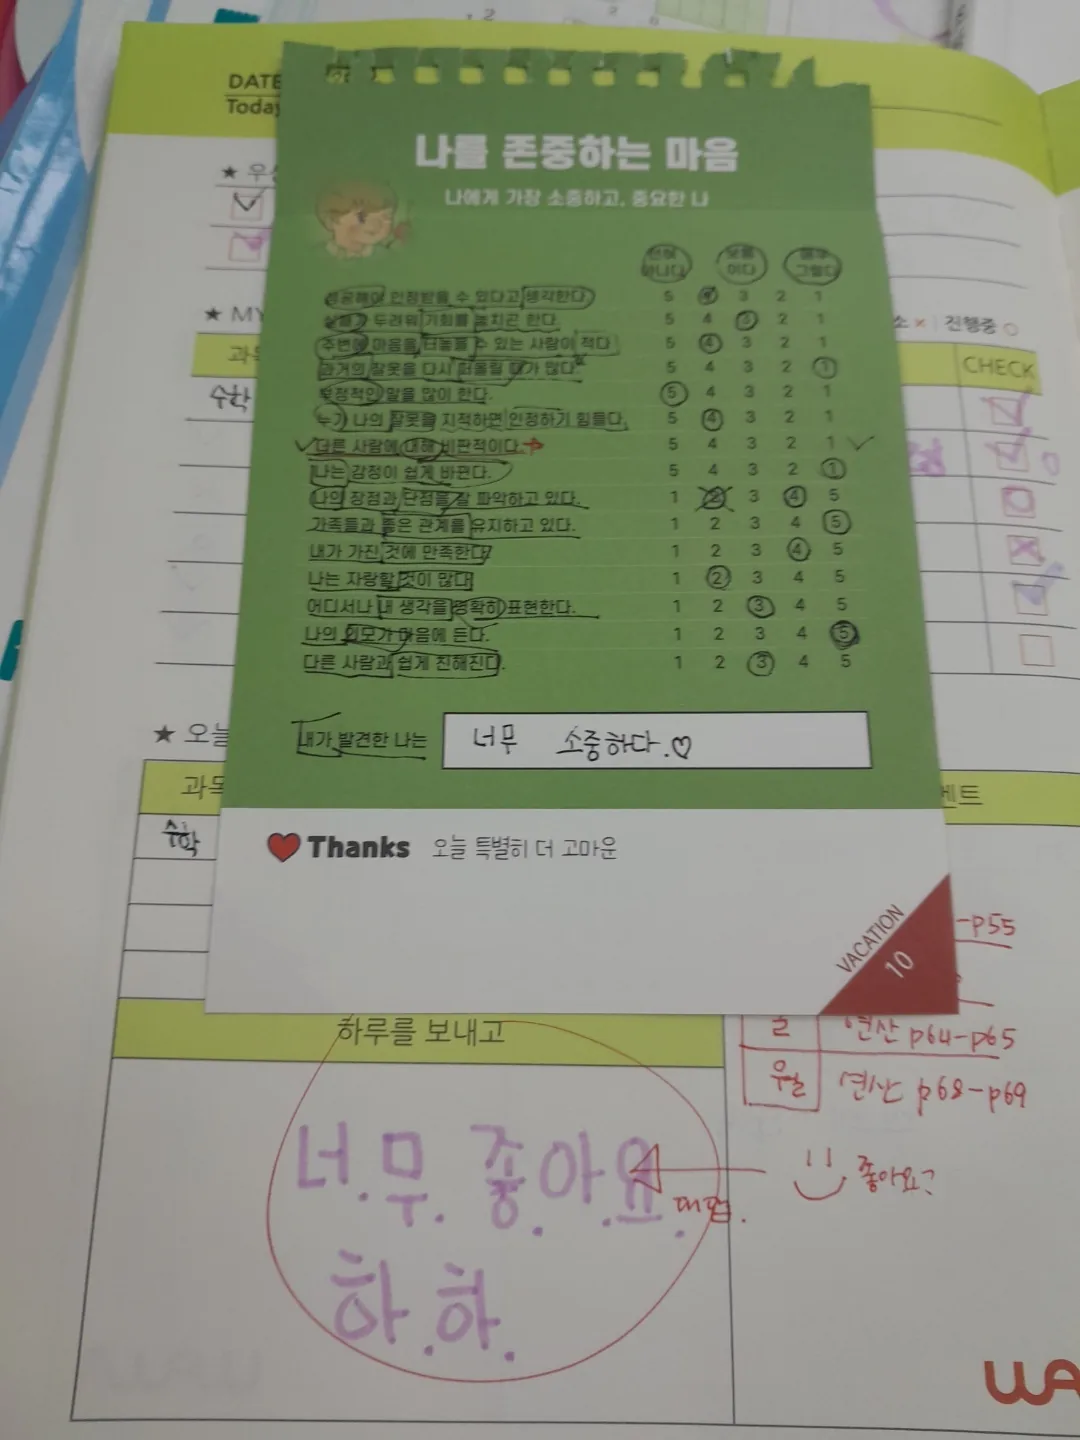 DATE
Today
나를 존중하는 마음
나에게 가장 소중하고, 중요한 나
전혀 아니다 보통이다 매우 그렇다
성공해야 인정받을 수 있다고 생각한다. 5 4 3 2 1
실패가 두려워 기회를 놓치곤 한다. 5 4 3 2 1
주변에 마음을 터놓을 수 있는 사람이 적다. 5 4 3 2 1
과거의 잘못을 다시 떠올릴 때가 많다. 5 4 3 2 1
부정적인 말을 많이 한다. 5 4 3 2 1
누가 나의 잘못을 지적하면 인정하기 힘들다. 5 4 3 2 1
다른 사람에 대해 비판적이다. 5 4 3 2 1
나는 감정이 쉽게 바뀐다. 5 4 3 2 1
나의 장점과 단점을 잘 파악하고 있다. 1 2 3 4 5
가족들과 좋은 관계를 유지하고 있다. 1 2 3 4 5
내가 가진 것에 만족한다. 1 2 3 4 5
나는 자랑할 것이 많다. 1 2 3 4 5
어디서나 내 생각을 명확히 표현한다. 1 2 3 4 5
나의 외모가 마음에 든다. 1 2 3 4 5
다른 사람과 쉽게 친해진다. 1 2 3 4 5
내가 발견한 나는 너무 소중하다.♡
Thanks 오늘 특별히 더 고마운
VACATION
10
★ MY
진행중 ○
CHECK
수학
★ 오늘
수학
-p55
연산 p64-p65
월 연산 p68-p69
하루를 보내고
너.무.좋아.요.
하.하.
좋아요?